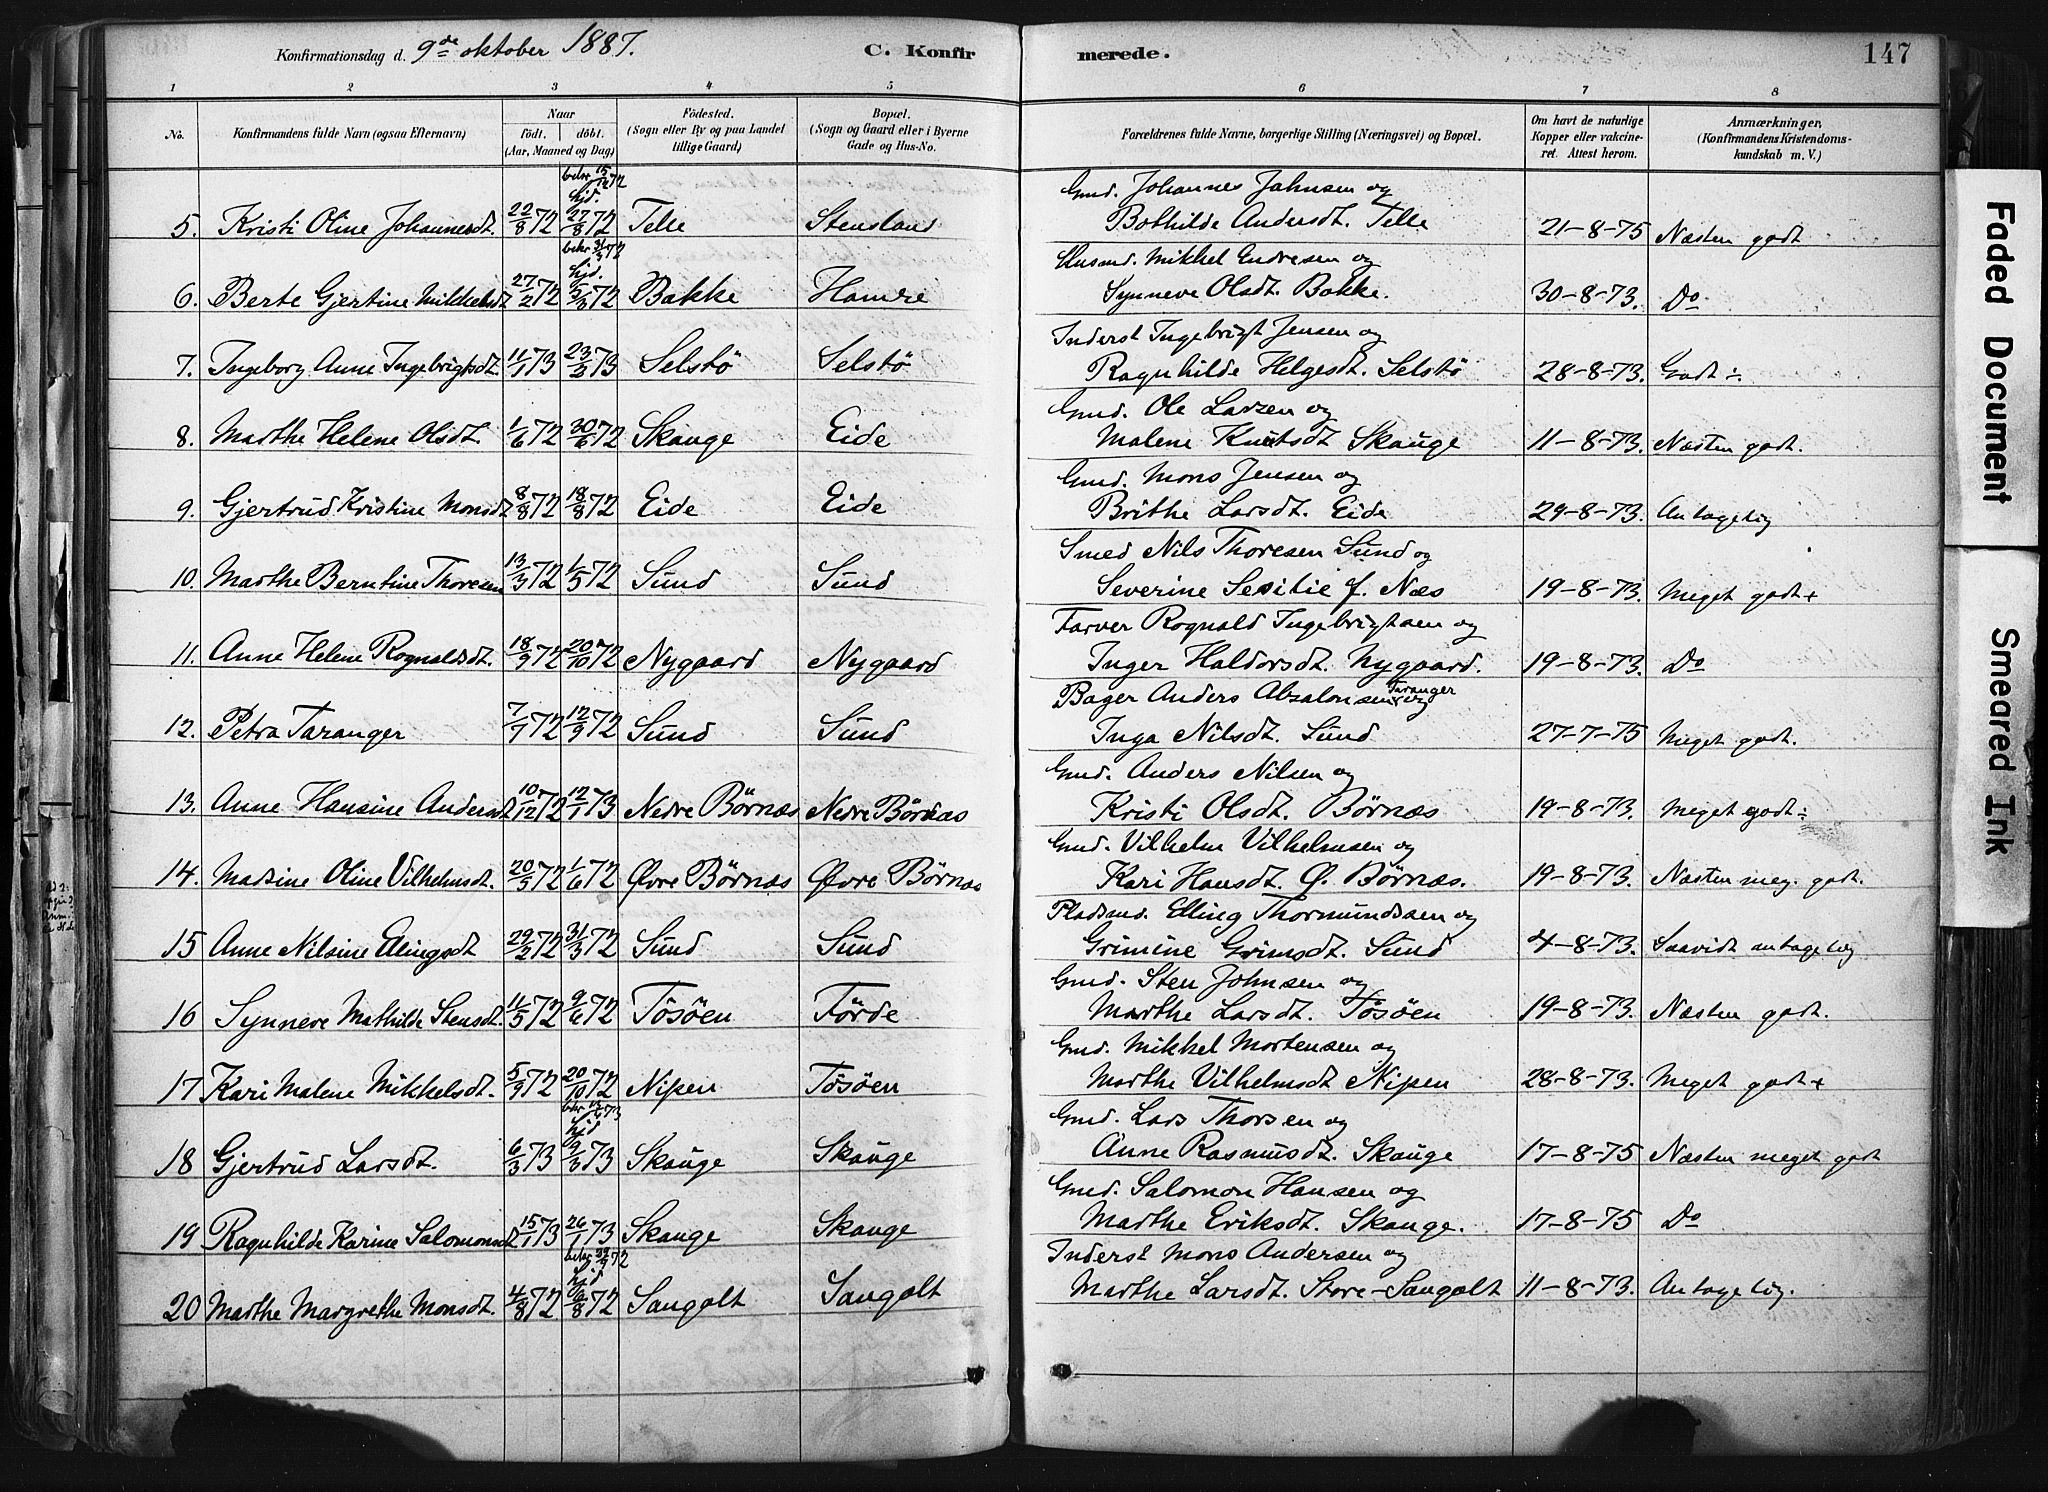 Konfirmationsdag d. 9de oktober 1887. C. Konfirmerede. 147
1 2 3 4 5 6 7 8
No. Konfirmandens fulde Navn (ogsaa Efternavn) Naar födt. döbt. (Aar, Maaned og Dag) Födested. (Sogn eller By og paa Landet tillige Gaard) Bopæl. (Sogn og Gaard eller i Byerne Gade og Hus-No. Forældrenes fulde Navne, borgerlige Stilling (Næringsvei) og Bopæl. Om havt de naturlige Kopper eller vakcineret. Attest herom. Anmærkninger, (Konfirmandens Kristendomskundskab m. V.)
bekr 15/12 72
hjd. Gmd. Johannes Johnsen og
5. Kristi Oline Johannesdt. 22/8 72 27/8 72 Telle Stensland Bothilde Andersdt. Telle 21-8-75 Næsten godt
bekr 31/3 72
hjd. Husmd. Mikkel Endresen og
6. Berte Gjertine Mikkelsdt 27/2 72 5/3 72 Bakke Hamre Synneve Olsdt. Bakke. 30-8-73. Do
Inderst Ingebrigt Jensen og
7. Ingeborg Anne Ingebrigtsdt. 11/1 73 23/2 73 Selstö Selstö Ragnhilde Helgesdt. Selstö 28-8-73. Godt ÷.
Gmd. Ole Larsen og
8. Marthe Helene Olsdt. 1/6 72 30/6 72 Skauge Eide Malene Knutsdt Skauge 11-8-73. Næsten godt.
Gmd. Mons Jensen og
9. Gjertrud Kristine Monsdt 8/8 72 18/8 72 Eide Eide Brithe Larsdt. Eide 29-8-73. Antagelig
Smed Nils Thoresen Sund og
10. Marthe Berntine Thoresen 13/3 72 1/5 72 Sund Sund Severine f. Næs 19-8-73. Meget godt +
Farver Rognald Ingebrigtsen og
11. Anne Helene Rognaldsdt. 18/9 72 20/10 72 Nygaard Nygaard Inger Haldorsdt. Nygaard. 19-8-73. Do
Bager Anders Absalonsen Taranger og
12. Petra Taranger 7/7 72 12/9 72 Sund Sund Inga Nilsdt. Sund 27-7-75 Meget godt.
Gmd. Anders Nilsen og
13. Anne Hansine Andersdt 10/12 72 12/1 73 Nedre Börnæs Nedre Börnæs Kristi Olsdt. Börnæs 19-8-73. Meget godt ÷
Gmd. Vilhelm Vilhelmsen og
14. Madsine Oline Vilhelmsdt. 20/5 72 1/6 72 Øvre Börnæs Øvre Börnæs Kari Hansdt. Ø. Börnæs. 19-8-73. Næsten meg. godt.
Pladsmd. Elling Thormundssen og
15 Anne Nilsine Elingsdt 29/2 72 31/3 72 Sund Sund Grimine Grimsdt. Sund 4-8-73. Saavidt antagelig
Gmd. Sten Johnsen og
16 Synneve Mathilde Stensdt. 11/5 72 9/6 72 Tösöen Förde Marthe Larsdt. Tösöen 19-8-73. Næsten godt.
Gmd. Mikkel Mortensen og
17 Kari Malene Mikkelsdt. 5/9 72 20/10 72 Nipen Tösöen Marthe Vilhelmsdt Nipen 28-8-73. Meget godt +
bekr 73
hjd Gmd. Lars Thorsen og
18 Gjertrud Larsdt. 6/3 73 9/3 73 Skauge Skauge Anne Rasmusdt. Skauge 17-8-75 Næsten meget godt
Gmd. Salomon Hansen og
19 Ragnhilde Karine Salomonsdt 15/1 73 26/1 73 Skauge Skauge Marthe Eriksdt. Skauge. 17-8-75 Do
bekr 22/9 72
hjd Inderst Mons Andersen og
20 Marthe Margrethe Monsdt. 4/8 72 /8 72 Sangolt Sangolt Marthe Larsdt. Store-Sangolt 11-8-73. Antagelig.
Faded Document
Smeared Ink